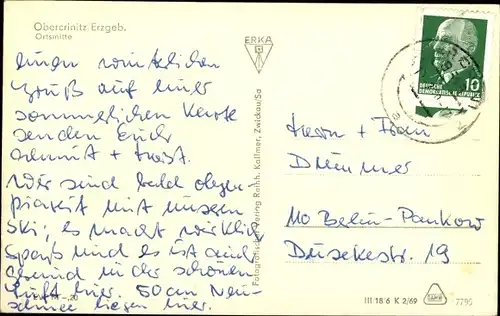 Obercrinitz Erzgeb.
Ortsmitte
Einen winterlichen
Gruß auf einer
sommerlichen Karte
senden Euch
und
Wir sind bald olym-
piareif mit unseren
Ski; es macht wirklich
Spaß und es ist auch
gesund in der schönen
Luft hier. 50 cm Neu-
schnee liegen hier.
ERKA
Fotografische Verlag Reinh. Kallmer, Zwickau/Sa
DEUTSCHE
DEMOKRATISCHE REPUBLIK
10
Herrn + Frau
110 Berlin-Pankow
Dusekestr. 19
III 18 6 K 2/69
7795